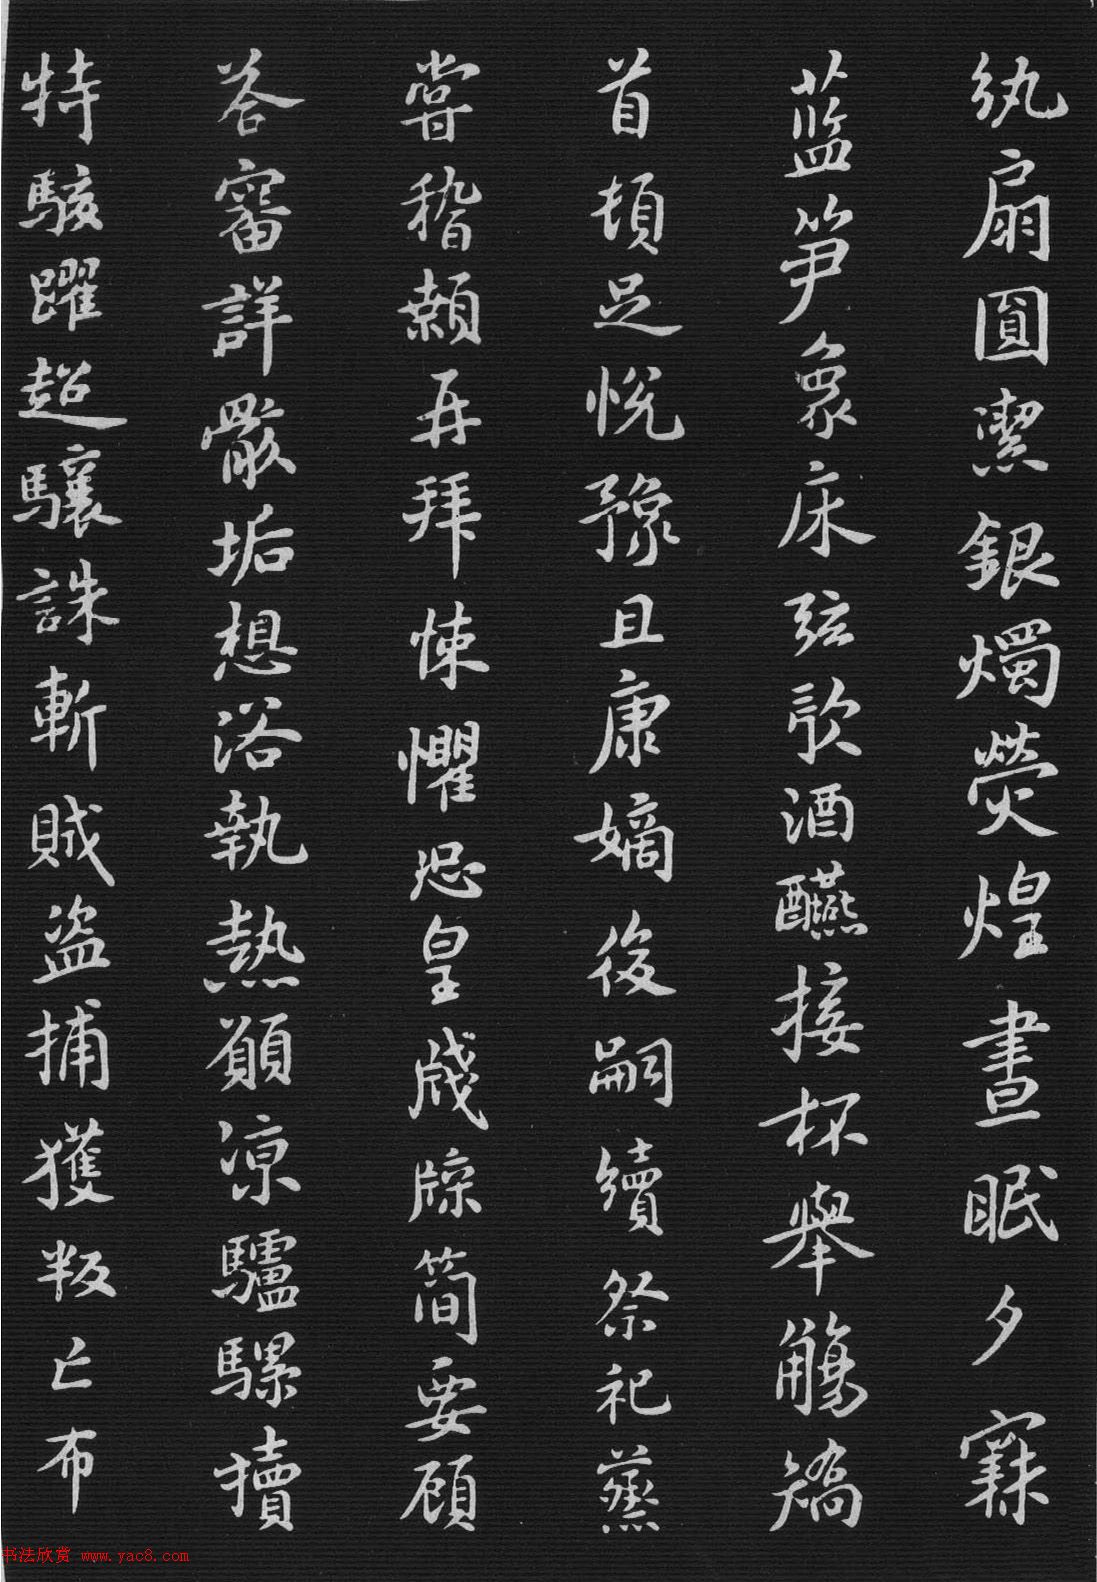 紈扇圓潔銀燭熒煌晝眠夕寐
藍笋象床弦歌酒醼接杯舉觴矯
首頓足悅豫且康嫡後嗣續祭祀蒸
嘗稽顙再拜悚懼恐皇牋牒簡要顧
答審詳骸垢想浴執熱願涼驢騾犢
特駭躍超驤誅斬賊盜捕獲叛亡布
书法欣赏 www.yac8.com